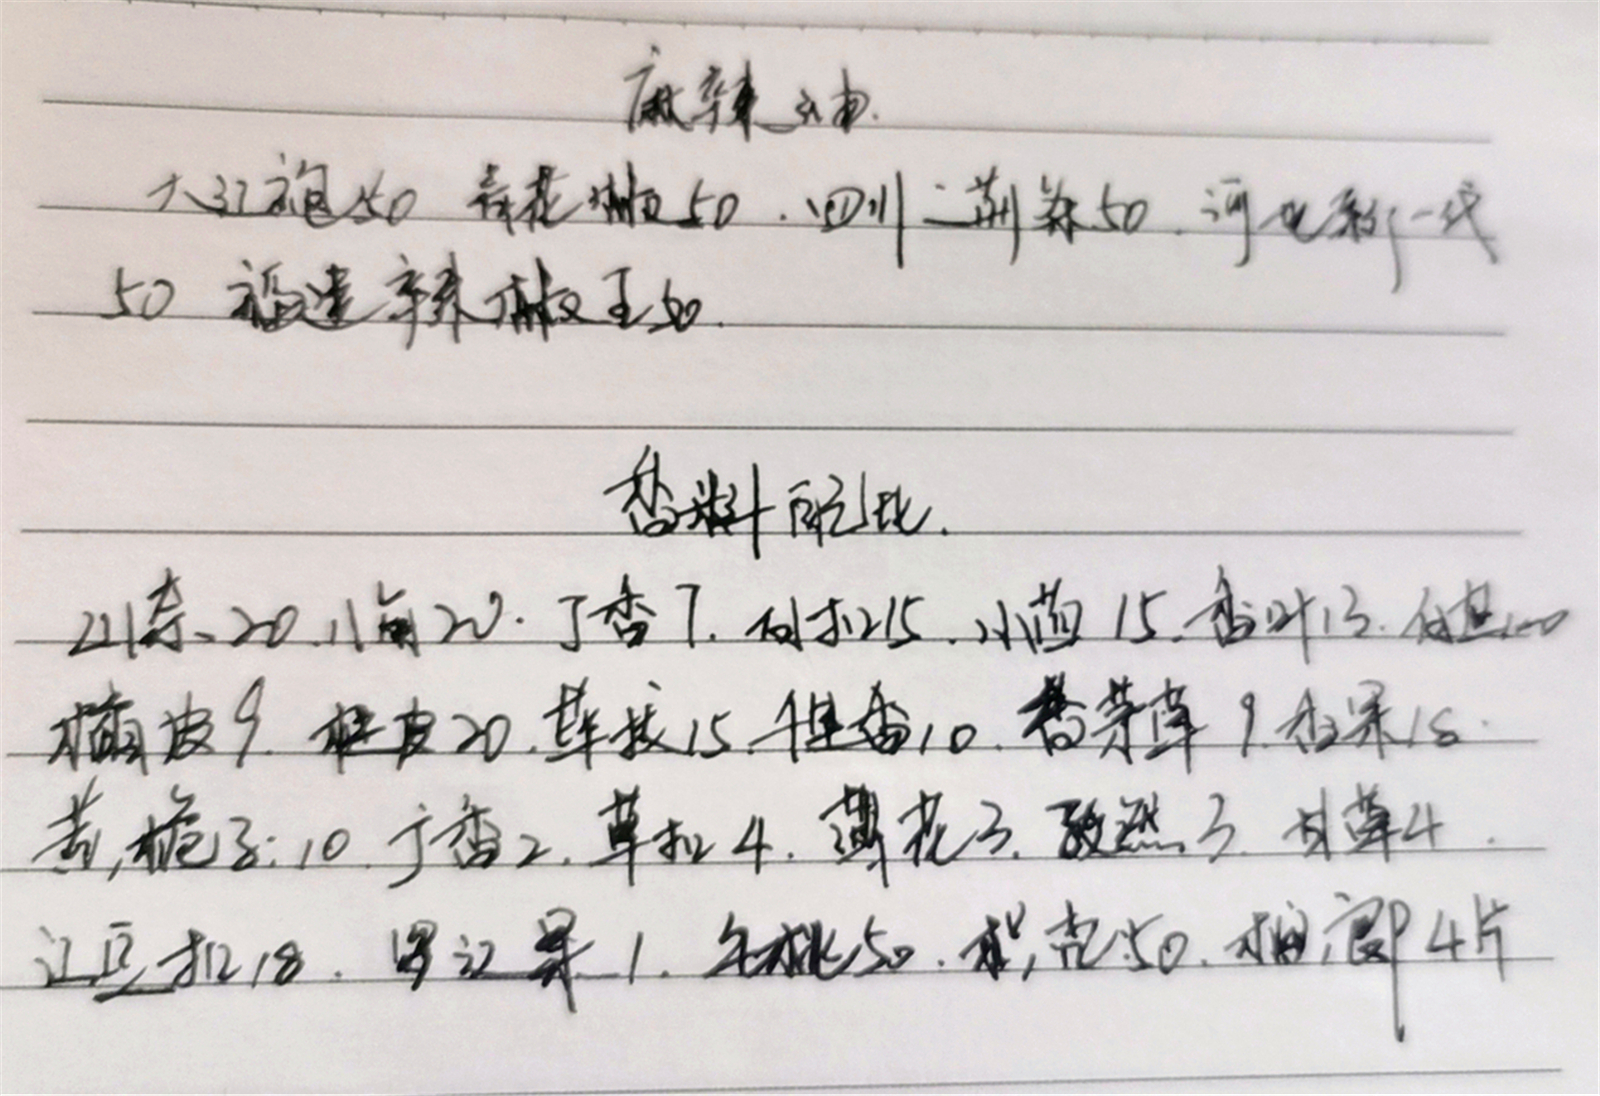 麻辣红油.
大红袍50 青花椒50.四川二荆条50.河北新一代
50 福建辣椒王50.
香料配比.
山奈、20.八角20.丁香7.白扣15.小茴15.香叶13.白芷
陈皮9.桂皮20.荜拨15.千里香10.香茅草9.香果18.
黄栀子:10 丁香2.草扣4. 花3.孜然3.甘草4.
红豆扣18.罗汉果1.核桃50.枳壳50.槟榔4片